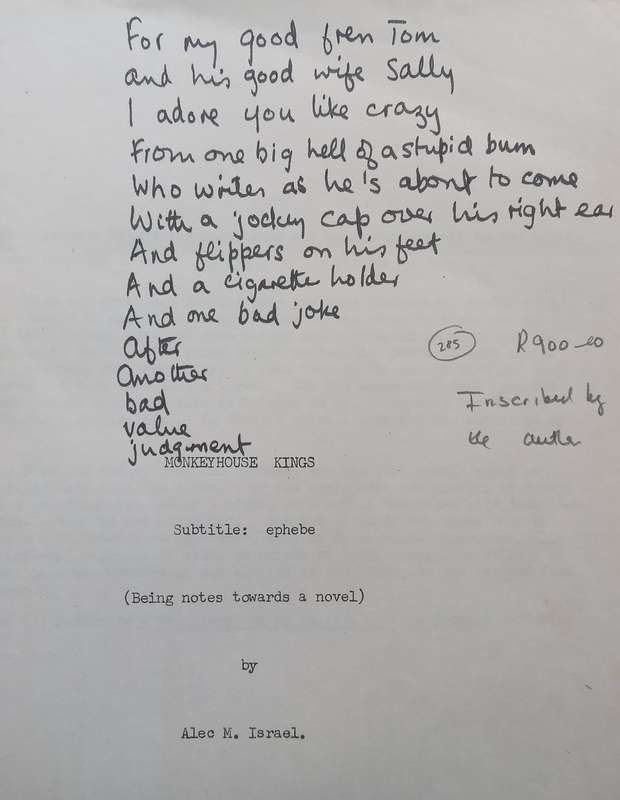 For my good fren Tom
and his good wife Sally
I adore you like crazy
From one big hell of a stupid bum
Who writes as he's about to come
With a jockey cap over his right ear
And flippers on his feet
And a cigarette holder
And one bad joke
After
Another
bad
value
judgment
285 R900-00
Inscribed by
the author
MONKEYHOUSE KINGS
Subtitle: ephebe
(Being notes towards a novel)
by
Alec M. Israel.